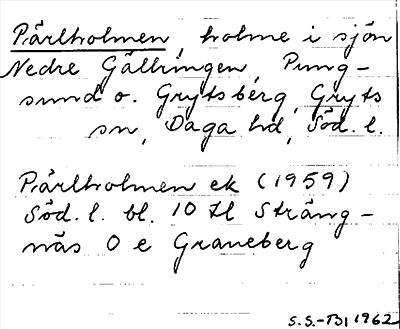 Pärlholmen, holme i sjön
Nedre Gällringen, Pung-
sund o. Grytsberg, Gryts
sn, Daga hd, Söd. l.
Pärlholmen ek (1959)
Söd. l. bl. 10 H Sträng-
näs O e Graneberg
S.S.-Bj 1962